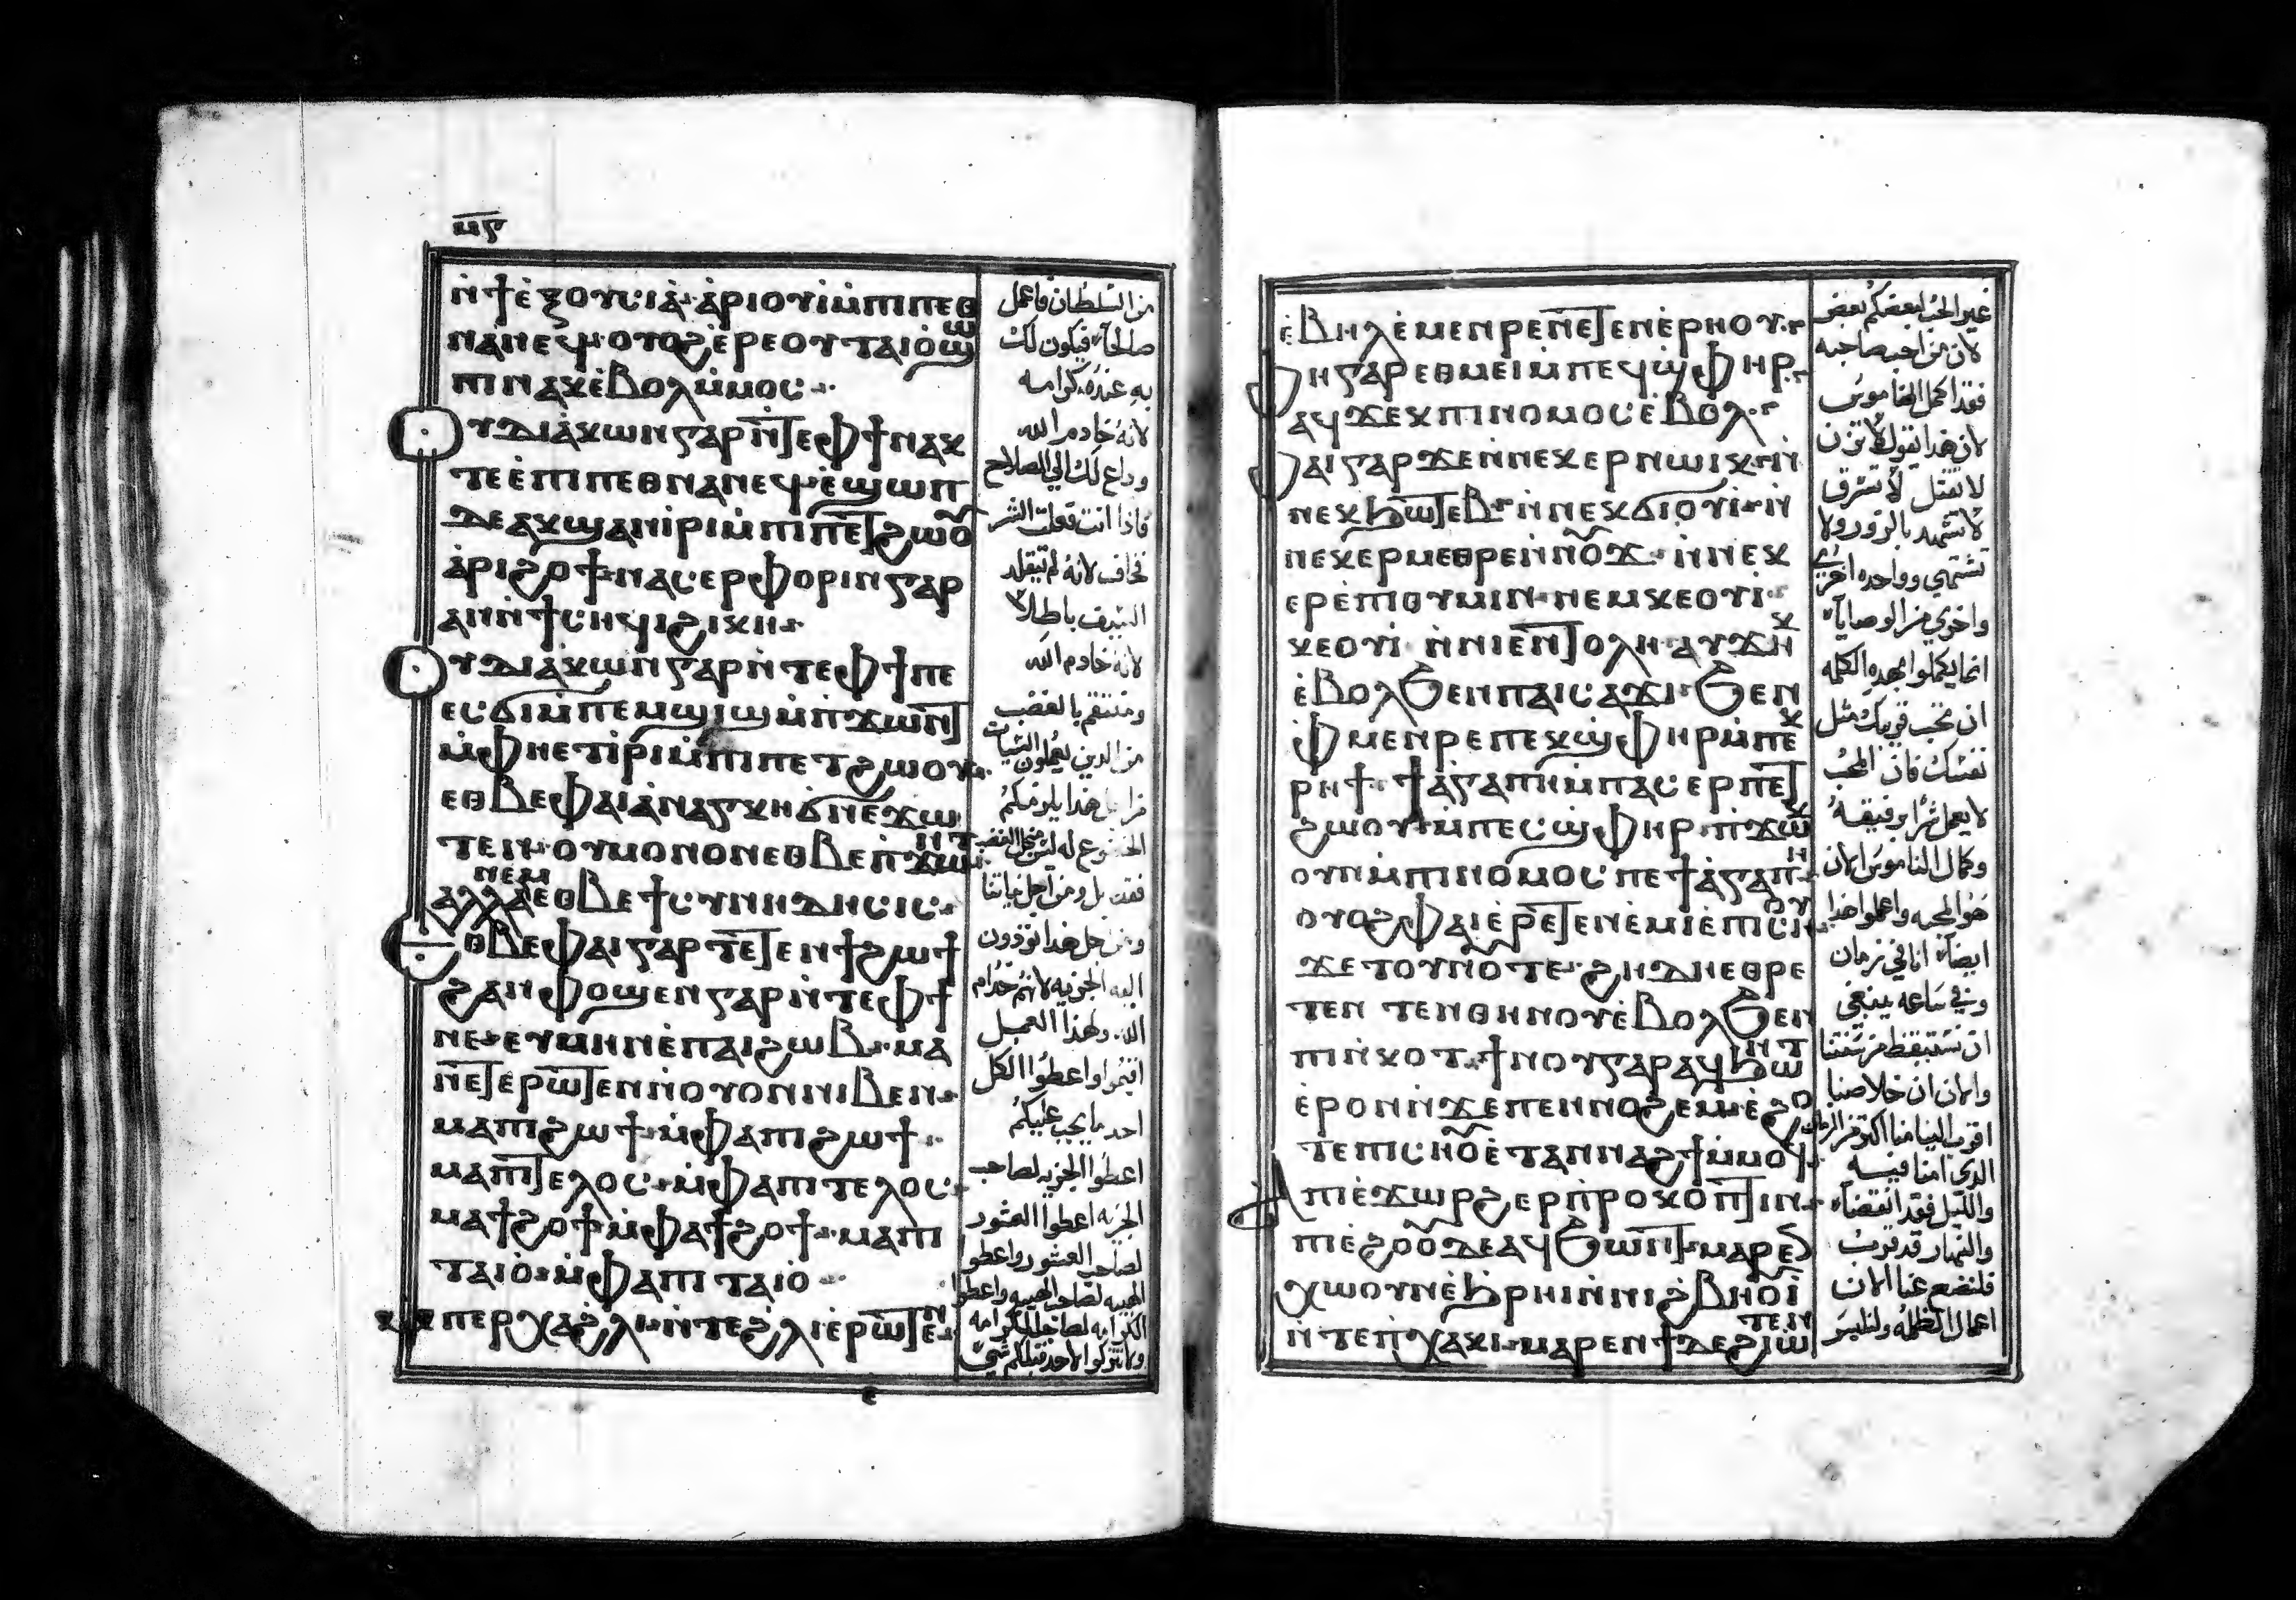 ⲙⲋ
ⲛ̀ϯⲉ̀ⲝⲟⲩⲥⲓⲁ̀· ⲁ̀ⲣⲓⲟⲩⲓ̀ⲙ̀ⲡⲓⲡⲉⲑ
ⲛⲁⲛⲉϥ· ⲟⲩⲟϩ ⲉ̀ⲣⲉⲟⲩⲧⲁⲓⲟ̀ϣⲱ
ⲡⲓ ⲛⲁⲕ ⲉ̀ⲃⲟⲗ ⲙ̀ⲙⲟⲥ·
ⲟⲩⲇⲓⲁ̀ⲕⲱⲛ ⲅⲁⲣ ⲛ̀ⲧⲉ ⲫϯ ⲛⲁⲕ
ⲡⲉ ⲉ̀ⲡⲓⲡⲉⲑⲛⲁⲛⲉϥ· ⲉ̀ϣⲱⲡ
ⲇⲉ ⲁⲕϣⲁⲛⲓ̀ⲣⲓ ⲙ̀ⲡⲓⲡⲉⲧϩⲱⲟⲩ
ⲁ̀ⲣⲓϩⲟϯ· ⲛⲁⲥⲉⲣⲫⲟⲣⲓⲛ ⲅⲁⲣ
ⲁⲛ ⲛ̀ϯⲥⲏϥⲓ ϩⲓⲕⲏ·
ⲟⲩⲇⲓⲁ̀ⲕⲱⲛ ⲅⲁⲣ ⲛ̀ⲧⲉ ⲫϯ ⲡⲉ
ⲉⲥϭⲓⲙ̀ⲡⲉⲙϣⲓϣ ⲙ̀ⲡϫⲱⲛⲧ
ⲙ̀ⲫⲏⲉⲧⲓ̀ⲣⲓ ⲙ̀ⲡⲓⲡⲉⲧϩⲱⲟⲩ·
ⲉⲑⲃⲉⲫⲁⲓ ⲁ̀ⲛⲁⲅⲕⲏ ϭⲛⲉϫⲱ
ⲧⲉⲛ· ⲟⲩⲙⲟⲛⲟⲛ ⲉⲑⲃⲉ ⲡ̀ϫⲱⲛⲧ·
ⲁⲗⲗⲁ ⲛⲉⲙ ⲉⲑⲃⲉ ϯⲥⲩⲛⲏⲇⲏⲥⲓⲥ·
ⲉⲑⲃⲉⲫⲁⲓ ⲅⲁⲣ ⲧⲉⲧⲉⲛϯϩⲱϯ
ϩⲁⲛⲫⲟϣⲉⲛ ⲅⲁⲣ ⲛ̀ⲧⲉ ⲫϯ
ⲛⲉ· ⲉⲩⲙⲏⲛ ⲉ̀ⲡⲁⲓϩⲱⲃ· ⲙⲁ
ⲛⲉⲧⲉⲣⲱⲧⲉⲛ ⲛ̀ⲟⲩⲟⲛ ⲛⲓⲃⲉⲛ·
ⲙⲁⲡⲓϩⲱϯ· ⲙ̀ⲫⲁⲡⲓϩⲱϯ·
ⲙⲁⲡⲓⲧⲉⲗⲟⲥ· ⲙ̀ⲫⲁⲡⲓⲧⲉⲗⲟⲥ·
ⲙⲁϯϩⲟϯ ⲙ̀ⲫⲁϯϩⲟϯ· ⲙⲁⲡⲓ
ⲧⲁⲓⲟ̀· ⲙ̀ⲫⲁⲡⲓⲧⲁⲓⲟ̀·
ⲙ̀ⲡⲉⲣⲭⲁϩ̀ⲗⲓ· ⲛ̀ⲧⲉϩ̀ⲗⲓ ⲉ̀ⲣⲱⲧⲉⲛ·
من السلطان فاعمل
صالحاً فيكون لك
به عنده كرامه
لانه خادم الله
وداع لك الي الصلاح
فاذا انت فعلت الشر
فخاف لانه لم يتقلد
السيف باطلاً
لانه خادم الله
ومنتقم بالغضب
من الدين يعملون السيات
من اجل هذا يلزمكم
الخضوع له ليس من اجل الغضب
فقط بل ومن اجل نياتنا
ومن اجل هذا تؤدون
اليه الجزيه لانهم خدام
الله ولهذا العمل
اقيموا واعطوا الكل
احد ما يجب عليكم
اعطوا الجزيه لصاحب
الجزيه اعطوا العشور
لصاحب العشور واعطوا
الهيبه لصاحب الهيبه واعطوا
الكرامه لصاحب الكرامه
ولا تتركوا لاحد قبلكم شي
ⲉ̀ⲃⲏⲗ ⲉ̀ⲙⲉⲛⲣⲉ ⲛⲉⲧⲉⲛⲉ̀ⲣⲏⲟⲩ·
ⲫⲏ ⲅⲁⲣ ⲉⲑⲙⲉⲓ ⲙ̀ⲡⲉϥϣⲫⲏⲣ·
ⲁϥϫⲉⲕ ⲡⲓⲛⲟⲙⲟⲥ ⲉ̀ⲃⲟⲗ·
ⲫⲁⲓ ⲅⲁⲣ ϫⲉ ⲛ̀ⲛⲉⲕⲉⲣⲛⲱⲓⲕ· ⲛ̀
ⲛⲉⲕϧⲱⲧⲉⲃ· ⲛ̀ⲛⲉⲕϭⲓⲟⲩⲓ· ⲛ̀
ⲛⲉⲕⲉⲣⲙⲉⲑⲣⲉ ⲛ̀ⲛⲟⲩϫ· ⲛ̀ⲛⲉⲕ
ⲉⲣⲉ̀ⲡⲓⲑⲩⲙⲓⲛ· ⲛⲉⲙ ⲕⲉⲟⲩⲓ·
ⲕⲉⲟⲩⲓ̀ ⲛ̀ⲛⲓⲉⲛⲧⲟⲗⲏ· ⲁⲩϫⲏⲕ
ⲉ̀ⲃⲟⲗ ϧⲉⲛ ⲡⲁⲓⲥⲁϫⲓ· ϧⲉⲛ
ⲫⲙⲉⲛⲣⲉ ⲡⲉⲕϣⲫⲏⲣ ⲙ̀ⲡⲉⲕ
ⲣⲏϯ· ϯⲁ̀ⲅⲁⲡⲏ ⲙ̀ⲡⲁⲥⲉⲣⲡⲉⲧ
ϩⲱⲟⲩ ⲙ̀ⲡⲉⲥϣⲫⲏⲣ· ⲡ̀ϫⲱⲕ
ⲟⲩⲛ ⲙ̀ⲡⲓⲛⲟⲙⲟⲥ ⲡⲉ ϯⲁ̀ⲅⲁⲡⲏ·
ⲟⲩⲟϩ ⲫⲁⲓ ⲉ̀ⲣⲉⲧⲉⲛⲉ̀ⲙⲓ ⲉ̀ⲡⲓⲥⲏⲟⲩ·
ϫⲉ ⲧⲟⲩⲛⲟⲩ ⲧⲉ· ϩⲏⲇⲏ ⲉⲑⲣⲉ
ⲧⲉⲛ ⲧⲉⲛⲑⲏⲛⲟⲩ ⲉ̀ⲃⲟⲗ ϧⲉⲛ
ⲡⲓⲛ̀ⲕⲟⲧ· ϯⲛⲟⲩ ⲅⲁⲣ ⲁϥϧⲱⲛⲧ
ⲉ̀ⲣⲟⲛ ⲛ̀ϫⲉ ⲡⲉⲛⲛⲟϩⲉⲙ ⲉ̀ϩⲟ
ⲧⲉ ⲡⲓⲥⲏⲟⲩ ⲉ̀ⲧⲁⲛⲛⲁϩϯ ⲙ̀ⲙⲟϥ·
ⲁ̀ⲡⲓⲉ̀ϫⲱⲣϩ ⲉⲣⲡⲣⲟⲕⲟⲡⲧⲓⲛ·
ⲡⲓⲉ̀ϩⲟⲟⲩ ⲇⲉ ⲁϥϧⲱⲛⲧ· ⲙⲁⲣⲉⲛ
ⲭⲱ ⲟⲩⲛ ⲉ̀ϧⲣⲏⲓ ⲛ̀ⲛⲓϩⲃⲏⲟⲩⲓ̀
ⲛ̀ⲧⲉ ⲡ̀ⲭⲁⲕⲓ· ⲙⲁⲣⲉⲛϯ ⲇⲉ ϩⲓⲱⲧⲉⲛ
غير الحب لبعضكم بعض
لان من احب صاحبه
فقد اكمل الناموس
لان هدا يقول لا تزن
لا تقتل لا تسرق
لا تشهد بالزور ولا
تشتهي وواحده اخري
واخري من الوصايا
انما يكملوا بهده الكلمه
ان تحب قريبك مثل
نفسك فان المحب
لا يعمل شراً برفيقه
وكمال الناموس الان
هو المحبه واعلموا هدا
ايضاً اننا في زمان
وفي ساعه ينبغي
ان نستيقظ من سنتنا
والان ان خلاصنا
اقترب الينا منا اكثر من الزمان
الدي امنا فيه
والليل فقد انقضا
والنهار قد قرب
فلنضع عنا الان
اعمال الظلمه ولنلبس